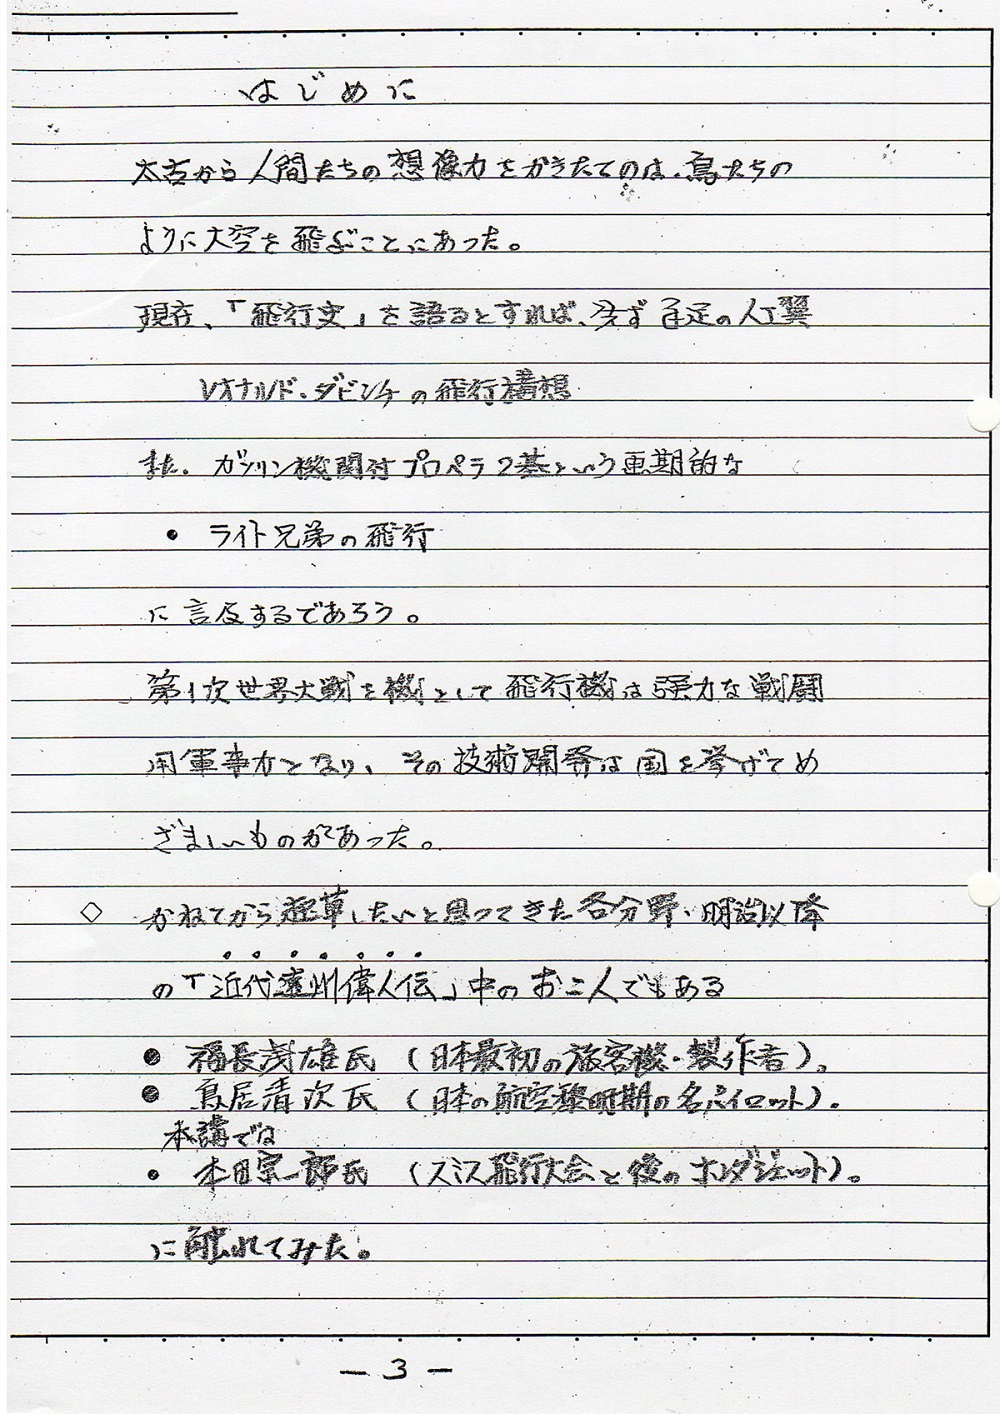 はじめに
太古から人間たちの想像力をかきたてのは、鳥たちの
ように大空を飛ぶことにあった。
現在、「飛行史」を語るとすれば、先ず手足の人工翼
レオナルド・ダビンチの飛行構想
また、ガソリン機関付プロペラ2基という画期的な
• ライト兄弟の飛行
に言及するであろう。
第1次世界大戦を機として飛行機は強力な戦闘
用軍事力となり、その技術開発は国を挙げてめ
ざましいものがあった。
◇ かねてから起草したいと思ってきた各分野・明治以降
の「近代遠州偉人伝」中のお二人でもある
● 福長浅雄氏（日本最初の旅客機・製作者）、
● 鳥居清次氏（日本の航空黎明期の名パイロット）。
本講では
• 本田宗一郎氏（スミス飛行大会と後のホンダジェット）。
に触れてみた。
— 3 —